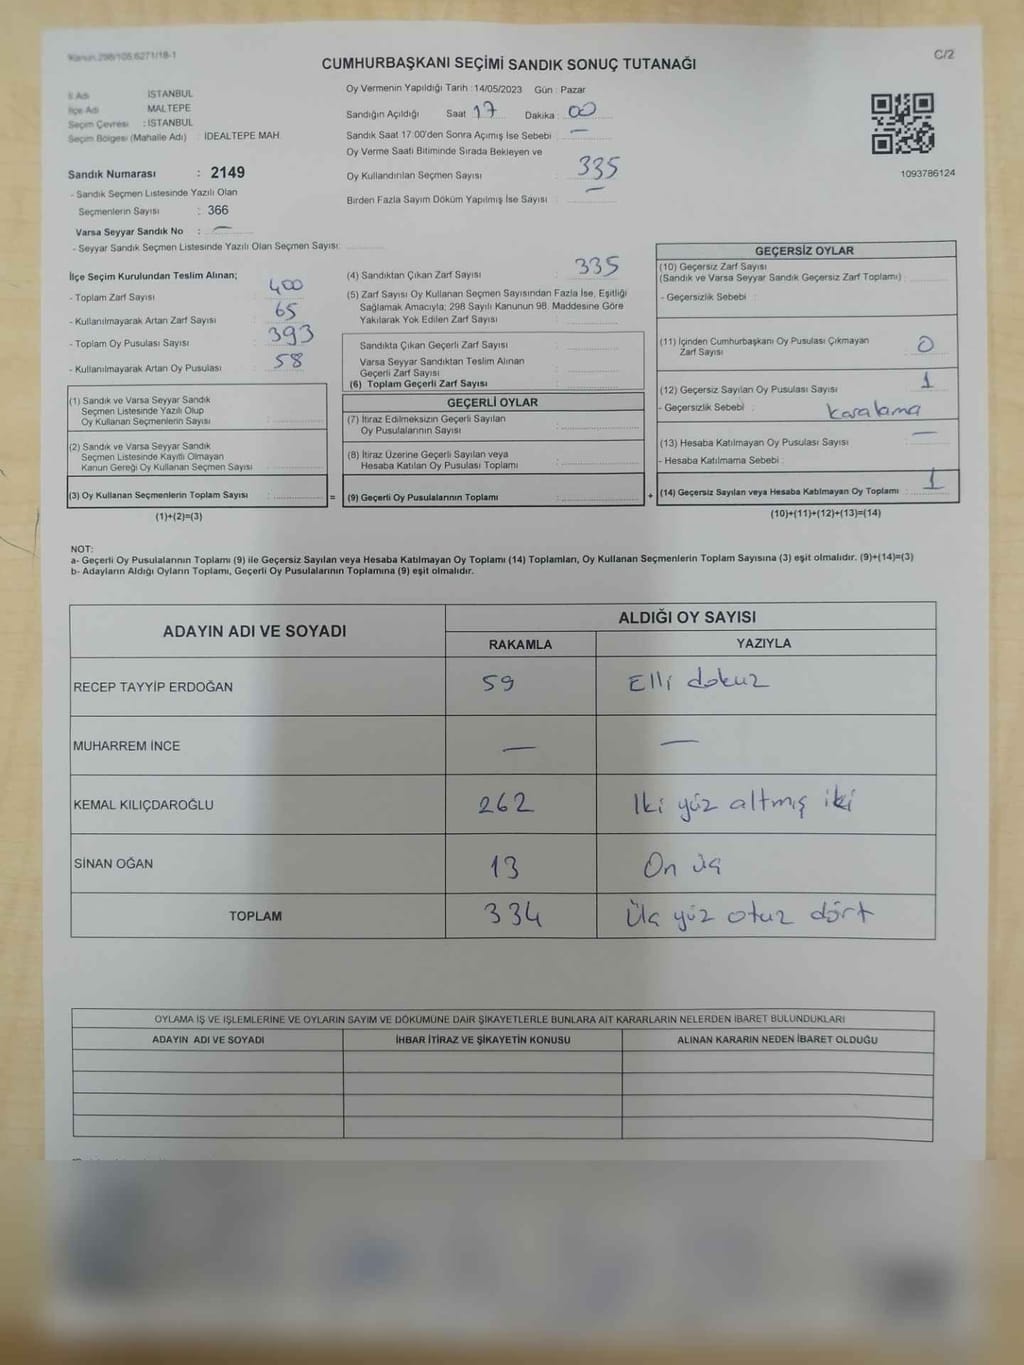 Kanun.298/105,6271/18-1
C/2
CUMHURBAŞKANI SEÇİMİ SANDIK SONUÇ TUTANAĞI
İl Adı : İSTANBUL
İlçe Adı : MALTEPE
Seçim Çevresi : İSTANBUL
Seçim Bölgesi (Mahalle Adı) : İDEALTEPE MAH.
Sandık Numarası : 2149
- Sandık Seçmen Listesinde Yazılı Olan
Seçmenlerin Sayısı : 366
Varsa Seyyar Sandık No : —
- Seyyar Sandık Seçmen Listesinde Yazılı Olan Seçmen Sayısı:
Oy Vermenin Yapıldığı Tarih : 14/05/2023 Gün : Pazar
Sandığın Açıldığı Saat 17 Dakika : 00
Sandık Saat 17:00'den Sonra Açımış İse Sebebi : —
Oy Verme Saati Bitiminde Sırada Bekleyen ve
Oy Kullandırılan Seçmen Sayısı : 335
Birden Fazla Sayım Döküm Yapılmış İse Sayısı : —
1093786124
İlçe Seçim Kurulundan Teslim Alınan;
- Toplam Zarf Sayısı : 400
- Kullanılmayarak Artan Zarf Sayısı : 65
- Toplam Oy Pusulası Sayısı : 393
- Kullanılmayarak Artan Oy Pusulası : 58
(1) Sandık ve Varsa Seyyar Sandık
Seçmen Listesinde Yazılı Olup
Oy Kullanan Seçmenlerin Sayısı :
(2) Sandık ve Varsa Seyyar Sandık
Seçmen Listesinde Kayıtlı Olmayan
Kanun Gereği Oy Kullanan Seçmen Sayısı :
(3) Oy Kullanan Seçmenlerin Toplam Sayısı :
=
(1)+(2)=(3)
(4) Sandıktan Çıkan Zarf Sayısı : 335
(5) Zarf Sayısı Oy Kullanan Seçmen Sayısından Fazla İse, Eşitliği
Sağlamak Amacıyla; 298 Sayılı Kanunun 98. Maddesine Göre
Yakılarak Yok Edilen Zarf Sayısı :
Sandıkta Çıkan Geçerli Zarf Sayısı :
Varsa Seyyar Sandıktan Teslim Alınan
Geçerli Zarf Sayısı :
(6) Toplam Geçerli Zarf Sayısı :
GEÇERLİ OYLAR
(7) İtiraz Edilmeksizin Geçerli Sayılan
Oy Pusulalarının Sayısı :
(8) İtiraz Üzerine Geçerli Sayılan veya
Hesaba Katılan Oy Pusulası Toplamı :
(9) Geçerli Oy Pusulalarının Toplamı :
+
GEÇERSİZ OYLAR
(10) Geçersiz Zarf Sayısı
(Sandık ve Varsa Seyyar Sandık Geçersiz Zarf Toplamı) :
- Geçersizlik Sebebi :
(11) İçinden Cumhurbaşkanı Oy Pusulası Çıkmayan
Zarf Sayısı : 0
(12) Geçersiz Sayılan Oy Pusulası Sayısı : 1
- Geçersizlik Sebebi : karalama
(13) Hesaba Katılmayan Oy Pusulası Sayısı : —
- Hesaba Katılmama Sebebi :
(14) Geçersiz Sayılan veya Hesaba Katılmayan Oy Toplamı : 1
(10)+(11)+(12)+(13)=(14)
NOT:
a- Geçerli Oy Pusulalarının Toplamı (9) ile Geçersiz Sayılan veya Hesaba Katılmayan Oy Toplamı (14) Toplamları, Oy Kullanan Seçmenlerin Toplam Sayısına (3) eşit olmalıdır. (9)+(14)=(3)
b- Adayların Aldığı Oyların Toplamı, Geçerli Oy Pusulalarının Toplamına (9) eşit olmalıdır.
ADAYIN ADI VE SOYADI
ALDIĞI OY SAYISI
RAKAMLA YAZIYLA
RECEP TAYYİP ERDOĞAN 59 Elli dokuz
MUHARREM İNCE — —
KEMAL KILIÇDAROĞLU 262 İki yüz altmış iki
SİNAN OĞAN 13 On üç
TOPLAM 334 Üç yüz otuz dört
OYLAMA İŞ VE İŞLEMLERİNE VE OYLARIN SAYIM VE DÖKÜMÜNE DAİR ŞİKAYETLERLE BUNLARA AİT KARARLARIN NELERDEN İBARET BULUNDUKLARI
ADAYIN ADI VE SOYADI İHBAR İTİRAZ VE ŞİKAYETİN KONUSU ALINAN KARARIN NEDEN İBARET OLDUĞU